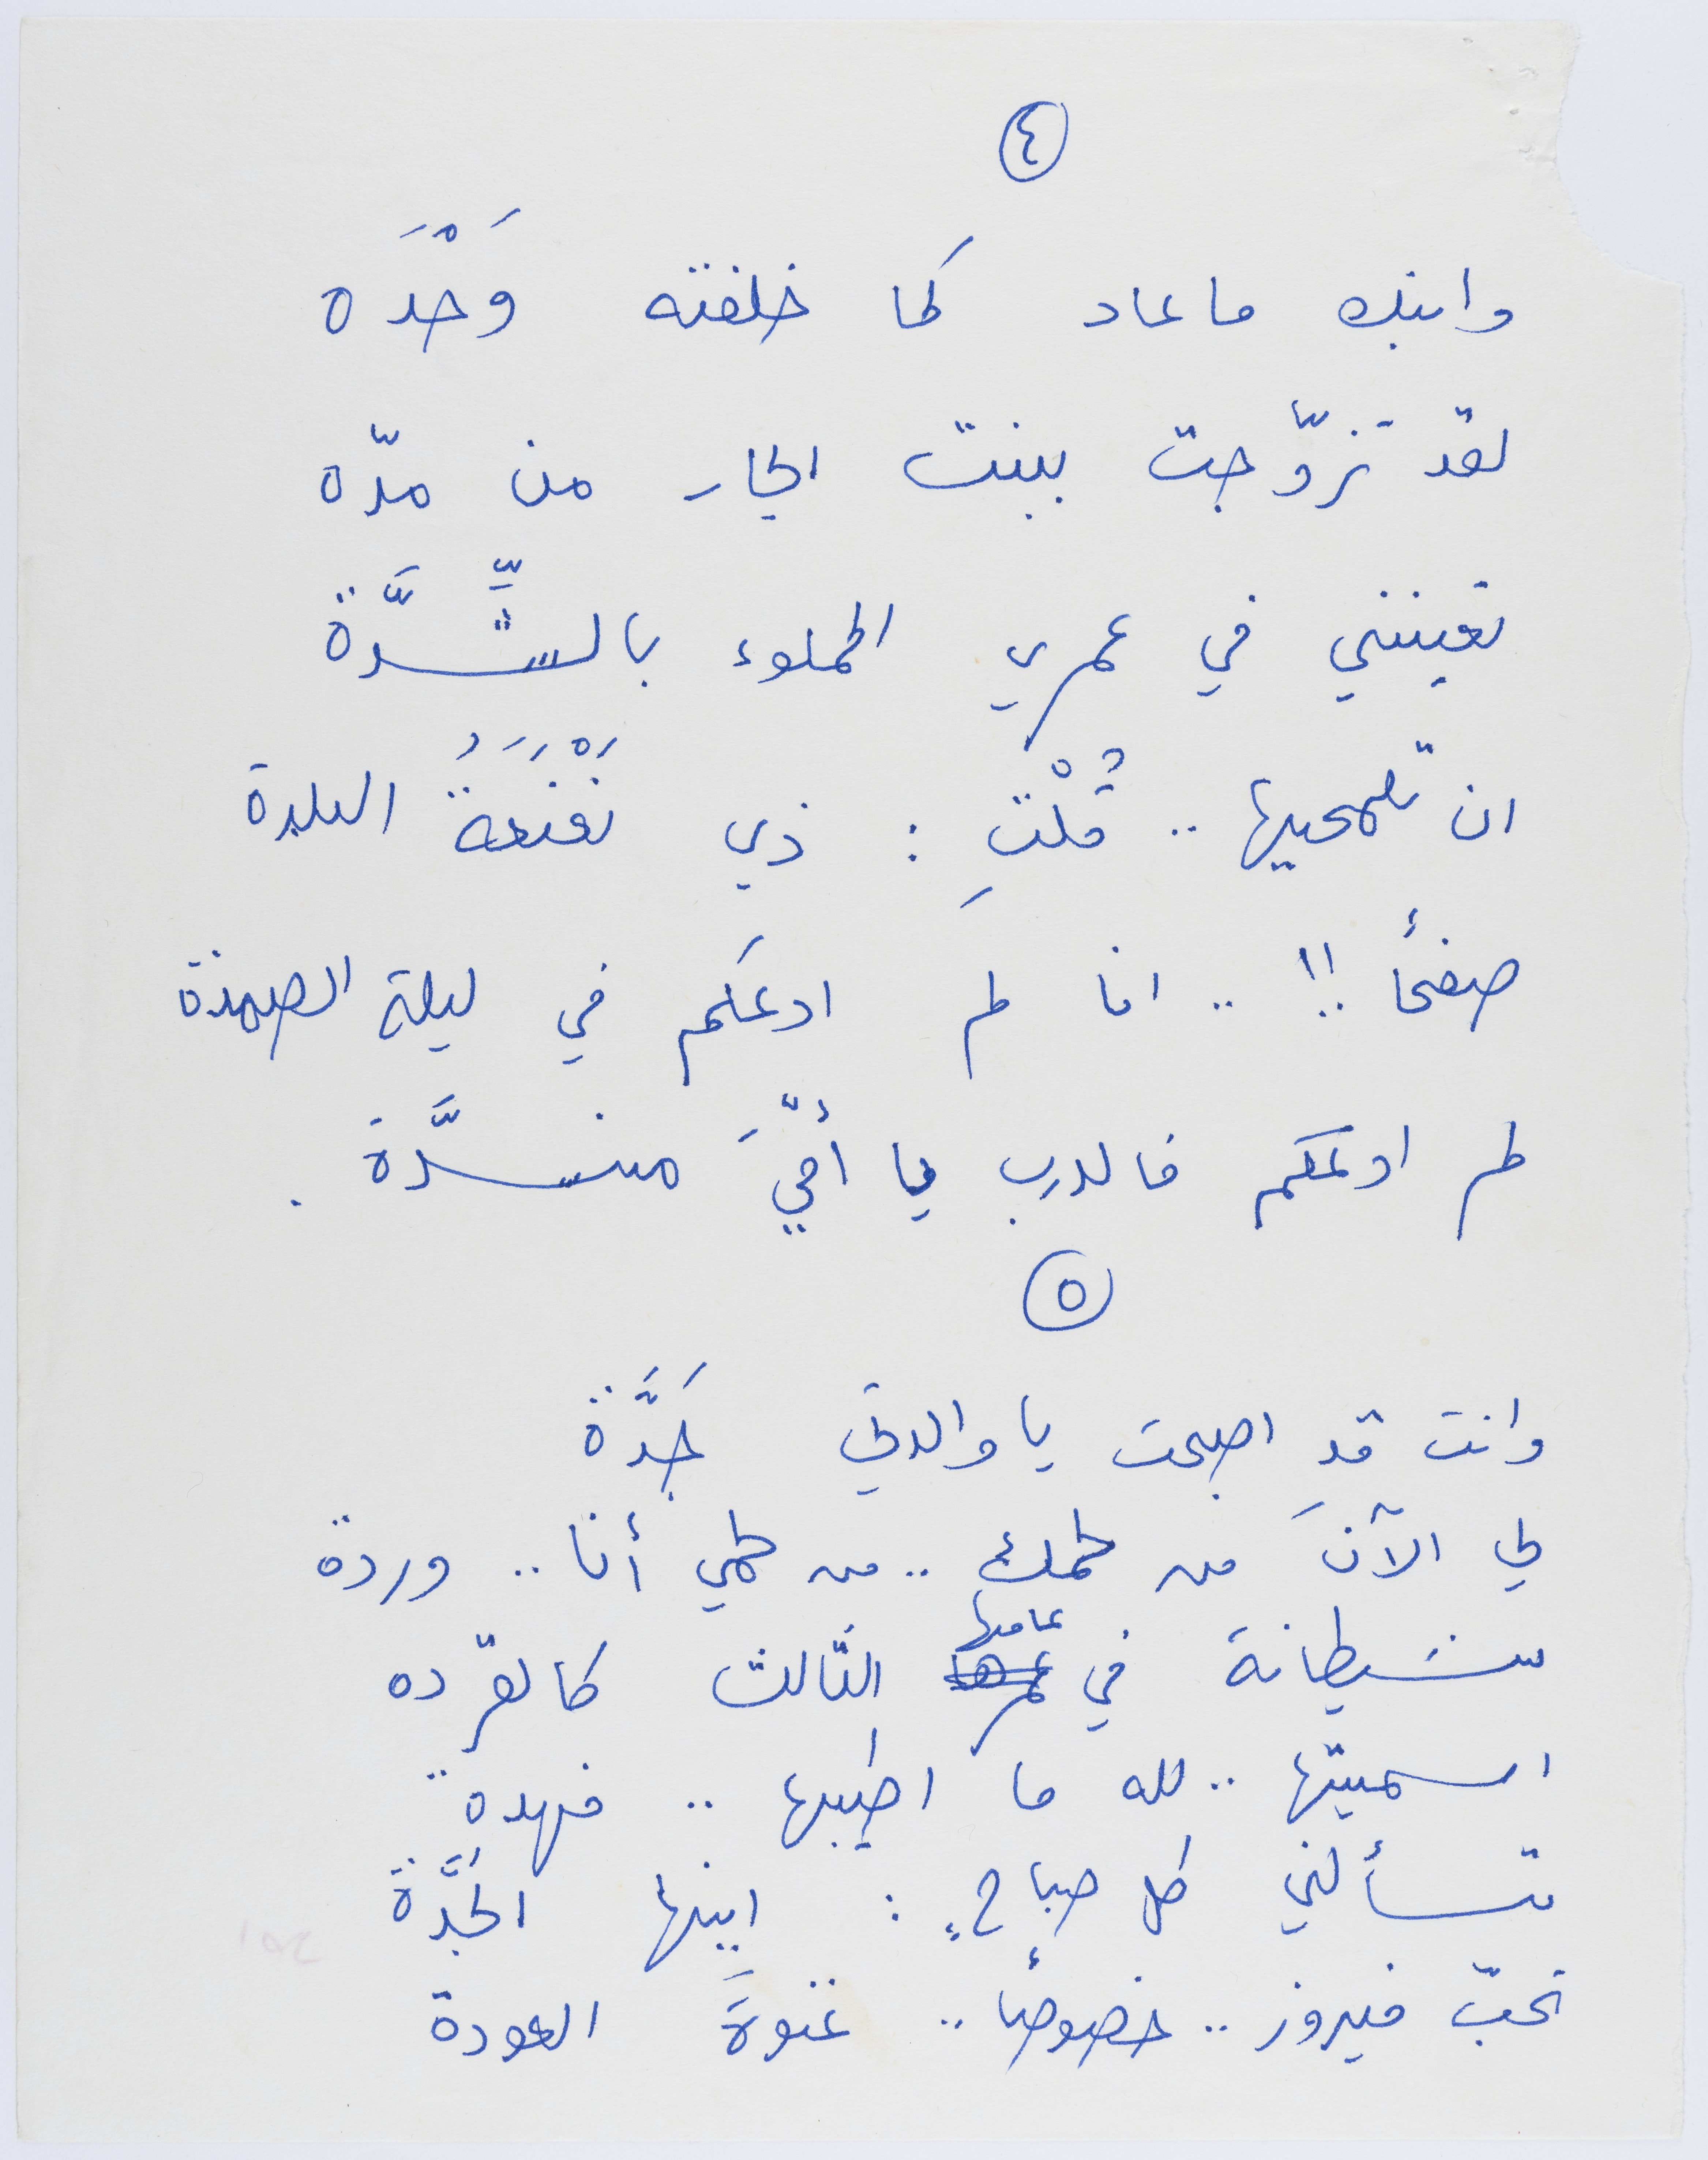 ٤
وابنك ما عاد كما خلفته وَحْدَه
لقد تزوّجت ببنت الجار من مدّه
تعينني في عمري المملوء بالشِّدَّة
ان تلمحيها .. قُلْتِ : ذي نَعْنَعَةُ البلدة
صفحاً !! .. انا لم ادعكم في ليلة الصمدة
لم ادعكم فالدرب يا أمّيَ منسدَّة .
٥
وانت قدِ اصبحت يا والدتي جَدَّة
لي الآنَ من لحمك .. من لحمي أنا .. وردة
شيطانة في عمرها عامها الثّالث كالقرده
اسميتها .. لله ما اطيبها .. فهدة
تسألني كل صباحٍ : اينها الجَدَّة
تحبّ فيروز .. خصوصاً .. غنوةَ العودة